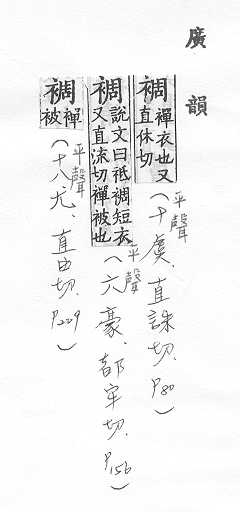 廣韻
裯 襌衣也又直休切（平聲 十虞、直誅切、P80）
裯 說文曰祗裯短衣又直流切襌被也（平聲 六豪、都牢切、P156）
裯 襌被（平聲 十八尤、直由切、P209）